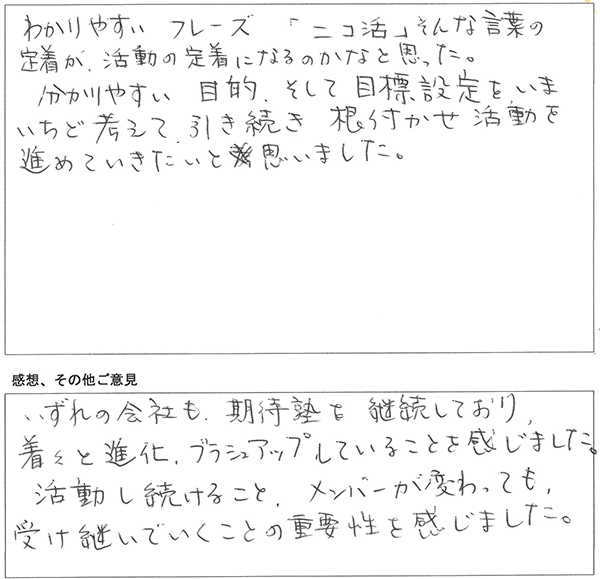 わかりやすい フレーズ 「ニコ活」そんな言葉の
定着が、活動の定着になるのかなと思った。
分かりやすい 目的、そして目標設定をいま
いちど考えて、引き続き 根付かせ活動を
進めていきたいと思いました。
感想、その他ご意見
いずれの会社も、期待塾を継続しており、
着々と進化、ブラシュアップしていることを感じました。
活動し続けること、メンバーが変わっても、
受け継いでいくことの重要性を感じました。